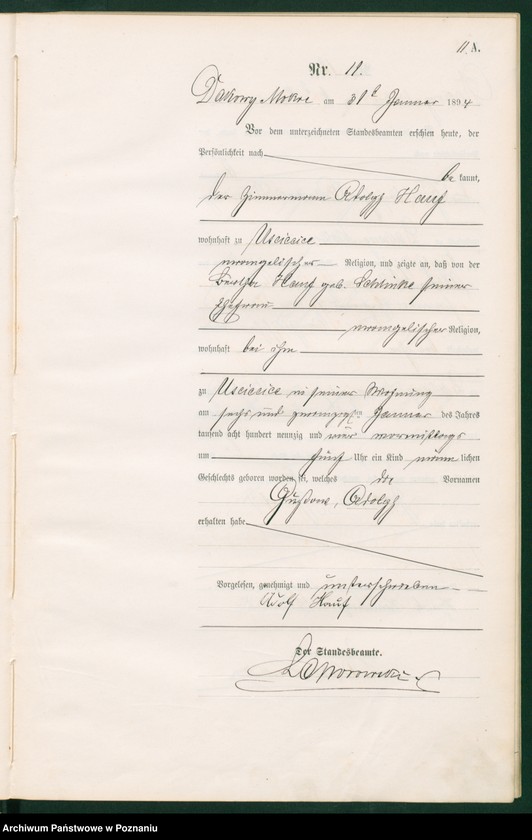 11 A.
Nr. 11.
Dakowy Mokre am 31t Januar 1894
Vor dem unterzeichneten Standesbeamten erschien heute, der
Persönlichkeit nach be kannt,
der Zimmermann Adolph Hauf
wohnhaft zu Uscieszice
evangelischer Religion, und zeigte an, daß von der
Bertha Hauf geb. Schlinke seiner
Ehefrau
evangelischer Religion,
wohnhaft bei ihm
zu Uscieszice in seiner Wohnung
am sechs und zwanzigsten Januar des Jahres
tausend acht hundert neunzig und vier vormittags
um fünf Uhr ein Kind männ lichen
Geschlechts geboren worden sei, welches die Vornamen
Gustav, Adolph
erhalten habe.
Vorgelesen, genehmigt und unterschrieben
Adolf Hauf
Der Standesbeamte.
Archiwum Państwowe w Poznaniu